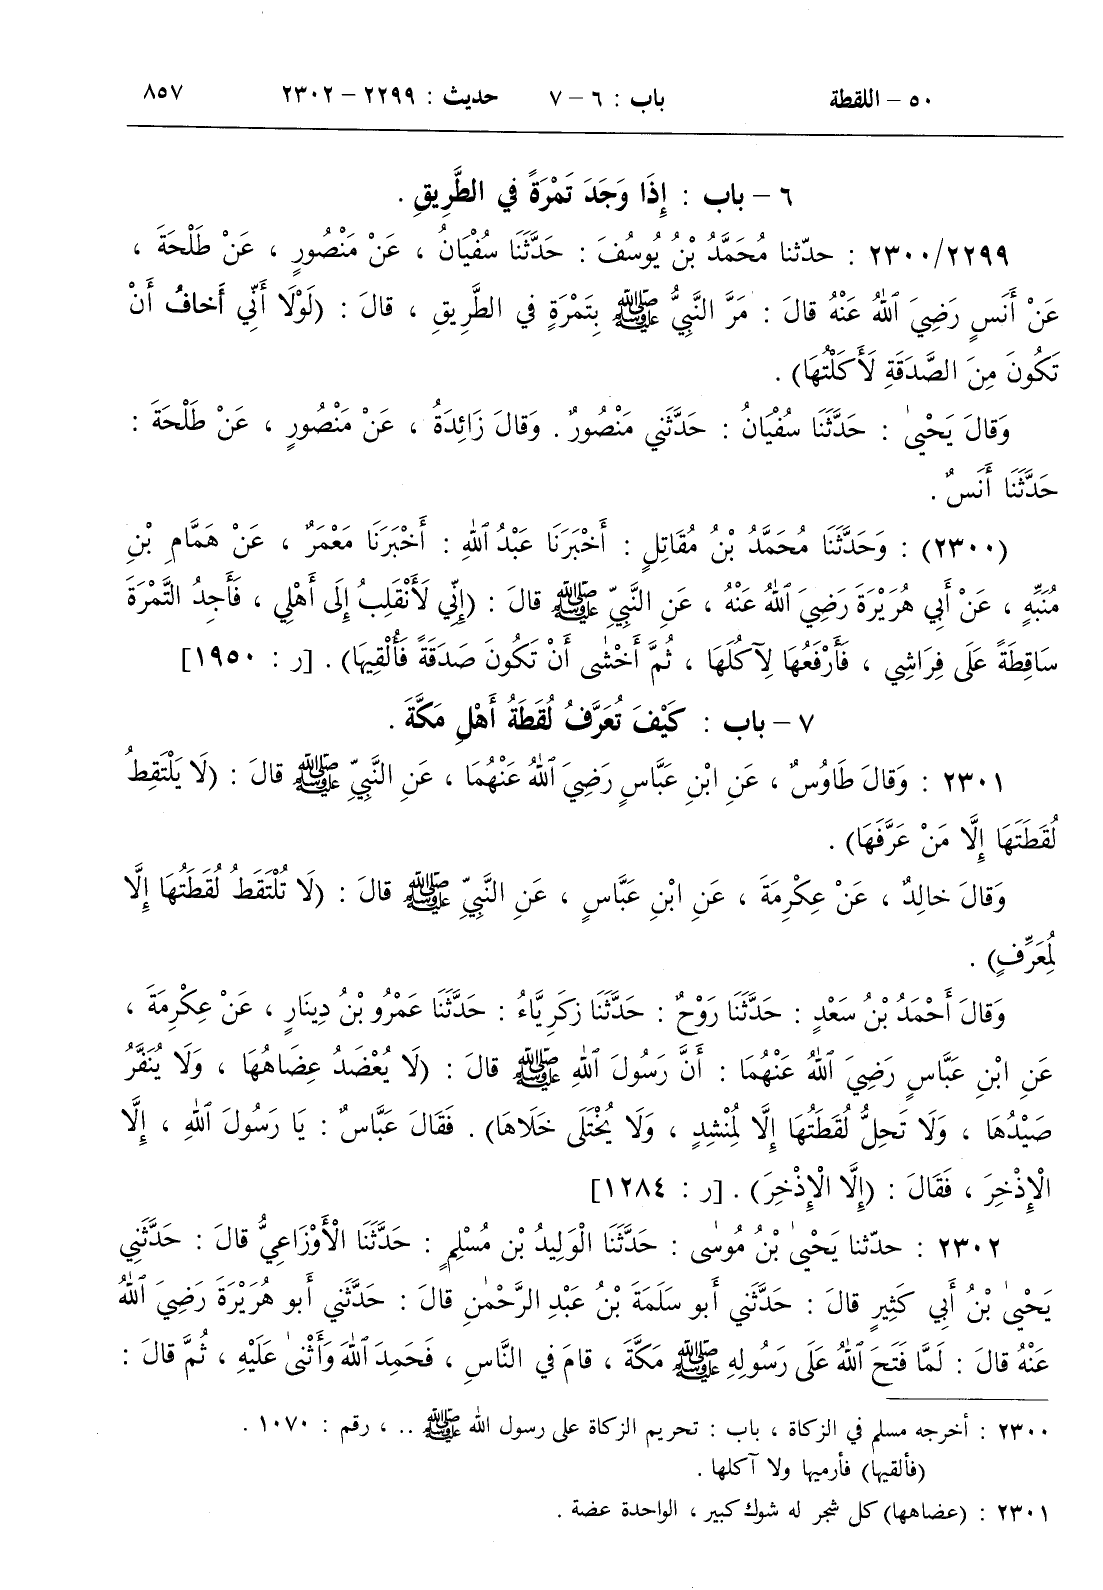 ٥٠ – اللقطة باب : ٦ – ٧ حديث : ٢٢٩٩ – ٢٣٠٢ ٨٥٧
٦ – باب : إِذَا وَجَدَ تَمْرَةً فِي الطَّرِيقِ .
٢٣٠٠/٢٢٩٩ : حدّثنا مُحَمَّدُ بْنُ يُوسُفَ : حَدَّثَنَا سُفْيَانُ ، عَنْ مَنْصُورٍ ، عَنْ طَلْحَةَ ،
عَنْ أَنَسٍ رَضِيَ ٱللهُ عَنْهُ قالَ : مَرَّ النَّبِيُّ ﷺ بِتَمْرَةٍ في الطَّرِيقِ ، قالَ : (لَوْلَا أَنِّي أَخافُ أَنْ
تَكُونَ مِنَ الصَّدَقَةِ لَأَكَلْتُهَا) .
وَقالَ يَحْيىٰ : حَدَّثَنَا سُفْيَانُ : حَدَّثَني مَنْصُورٌ . وَقالَ زَائِدَةُ ، عَنْ مَنْصُورٍ ، عَنْ طَلْحَةَ :
حَدَّثَنَا أَنَسٌ .
(٢٣٠٠) : وَحَدَّثَنَا مُحَمَّدُ بْنُ مُقَاتِلٍ : أَخْبَرَنَا عَبْدُ ٱللهِ : أَخْبَرَنَا مَعْمَرٌ ، عَنْ هَمَّامِ بْنِ
مُنَبِّهٍ ، عَنْ أَبي هُرَيْرَةَ رَضِيَ ٱللهُ عَنْهُ ، عَنِ النَّبِيِّ ﷺ قالَ : (إِنِّي لَأَنْقَلِبُ إِلَى أَهْلِي ، فَأَجِدُ التَّمْرَةَ
سَاقِطَةً عَلَى فِرَاشِي ، فَأَرْفَعُهَا لِآكُلَهَا ، ثُمَّ أَخْشٰى أَنْ تَكُونَ صَدَقَةً فَأُلْقِيهَا) . [ر : ١٩٥٠]
٧ – باب : كَيْفَ تُعَرَّفُ لُقَطَةُ أَهْلِ مَكَّةَ .
٢٣٠١ : وَقالَ طَاوُسٌ ، عَنِ ابْنِ عَبَّاسٍ رَضِيَ ٱللهُ عَنْهُمَا ، عَنِ النَّبِيِّ ﷺ قالَ : (لَا يَلْتَقِطُ
لُقَطَتَهَا إِلَّا مَنْ عَرَّفَهَا) .
وَقالَ خالِدٌ ، عَنْ عِكْرِمَةَ ، عَنِ ابْنِ عَبَّاسٍ ، عَنِ النَّبِيِّ ﷺ قالَ : (لَا تُلْتَقَطُ لُقَطَتُهَا إِلَّا
لِمُعَرِّفٍ) .
وَقالَ أَحْمَدُ بْنُ سَعْدٍ : حَدَّثَنَا رَوْحٌ : حَدَّثَنَا زَكَرِيَّاءُ : حَدَّثَنَا عَمْرُو بْنُ دِينَارٍ ، عَنْ عِكْرِمَةَ ،
عَنِ ابْنِ عَبَّاسٍ رَضِيَ ٱللهُ عَنْهُمَا : أَنَّ رَسُولَ ٱللهِ ﷺ قالَ : (لَا يُعْضَدُ عِضَاهُهَا ، وَلَا يُنَفَّرُ
صَيْدُهَا ، وَلَا تَحِلُّ لُقَطَتُهَا إِلَّا لِمُنْشِدٍ ، وَلَا يُخْتَلَى خَلَاهَا) . فَقَالَ عَبَّاسٌ : يَا رَسُولَ ٱللهِ ، إِلَّا
الْإِذْخِرَ ، فَقَالَ : (إِلَّا الْإِذْخِرَ) . [ر : ١٢٨٤]
٢٣٠٢ : حدّثنا يَحْيىٰ بْنُ مُوسٰى : حَدَّثَنَا الْوَلِيدُ بْن مُسْلِمٍ : حَدَّثَنَا الْأَوْزَاعِيُّ قالَ : حَدَّثَنِي
يَحْيىٰ بْنُ أَبي كَثِيرٍ قالَ : حَدَّثَني أَبو سَلَمَةَ بْنُ عَبْدِ الرَّحْمٰنِ قالَ : حَدَّثَني أَبو هُرَيْرَةَ رَضِيَ ٱللهُ
عَنْهُ قالَ : لَمَّا فَتَحَ ٱللهُ عَلَى رَسُولِهِ ﷺ مَكَّةَ ، قامَ في النَّاسِ ، فَحَمِدَ ٱللهَ وَأَثْنىٰ عَلَيْهِ ، ثُمَّ قالَ :
٢٣٠٠ : أخرجه مسلم في الزكاة ، باب : تحريم الزكاة على رسول الله ﷺ .. ، رقم : ١٠٧٠ .
(فألقيها) فأرميها ولا آكلها .
٢٣٠١ : (عضاهها) كل شجر له شوك كبير ، الواحدة عضة .